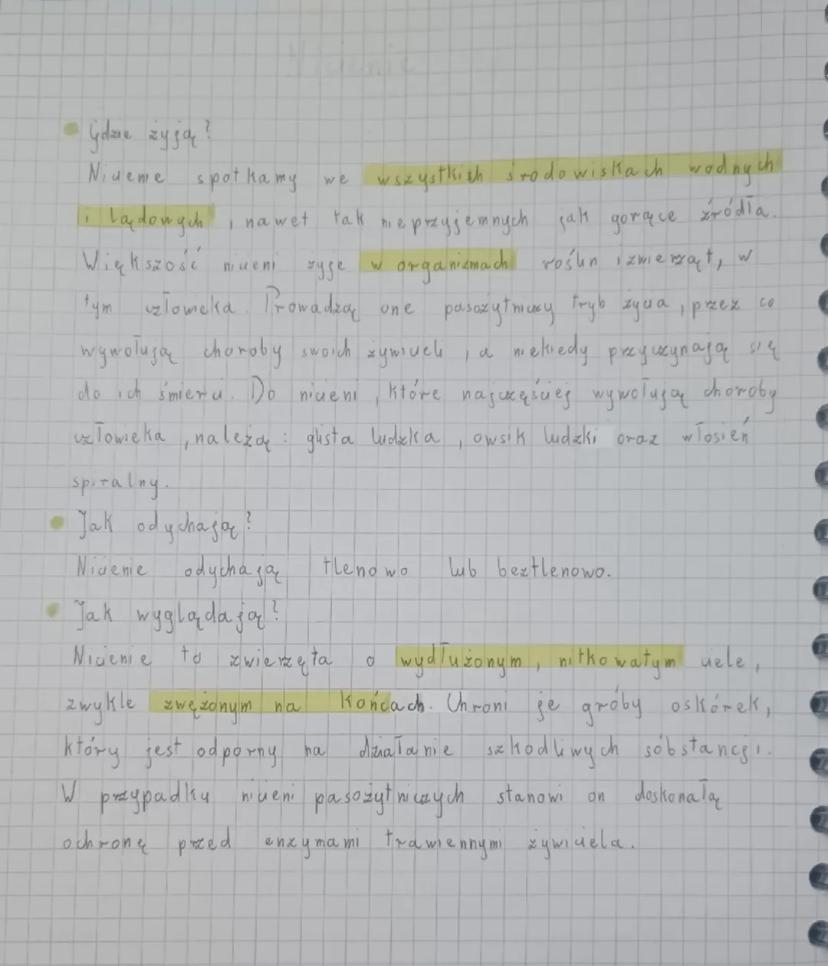 Nicienie
• Gdzie żyją?
Nicienie spotkamy we wszystkich środowiskach wodnych
i lądowych, nawet tak nieprzyjemnych jak gorące źródła.
Większość nicieni żyje w organizmach roślin i zwierząt, w
tym człowieka. Prowadzą one pasożytniczy tryb życia, przez co
wywołują choroby swoich żywicieli, a niekiedy przyczynają się
do ich śmierci. Do nicieni, które najczęściej wywołują choroby
człowieka, należą: glista ludzka, owsik ludzki oraz włosień
spiralny.
• Jak odychają?
Nicienie odychają tlenowo lub beztlenowo.
• Jak wyglądają?
Nicienie to zwierzęta o wydłużonym, nitkowatym ciele,
zwykle zwężonym na końcach. Chroni je gróby oskórek,
który jest odporny na działanie szkodliwych sóbstancji.
W przypadku nicieni pasożytniczych stanowi on doskonałą
ochronę przed enzymami trawiennymi żywiciela.